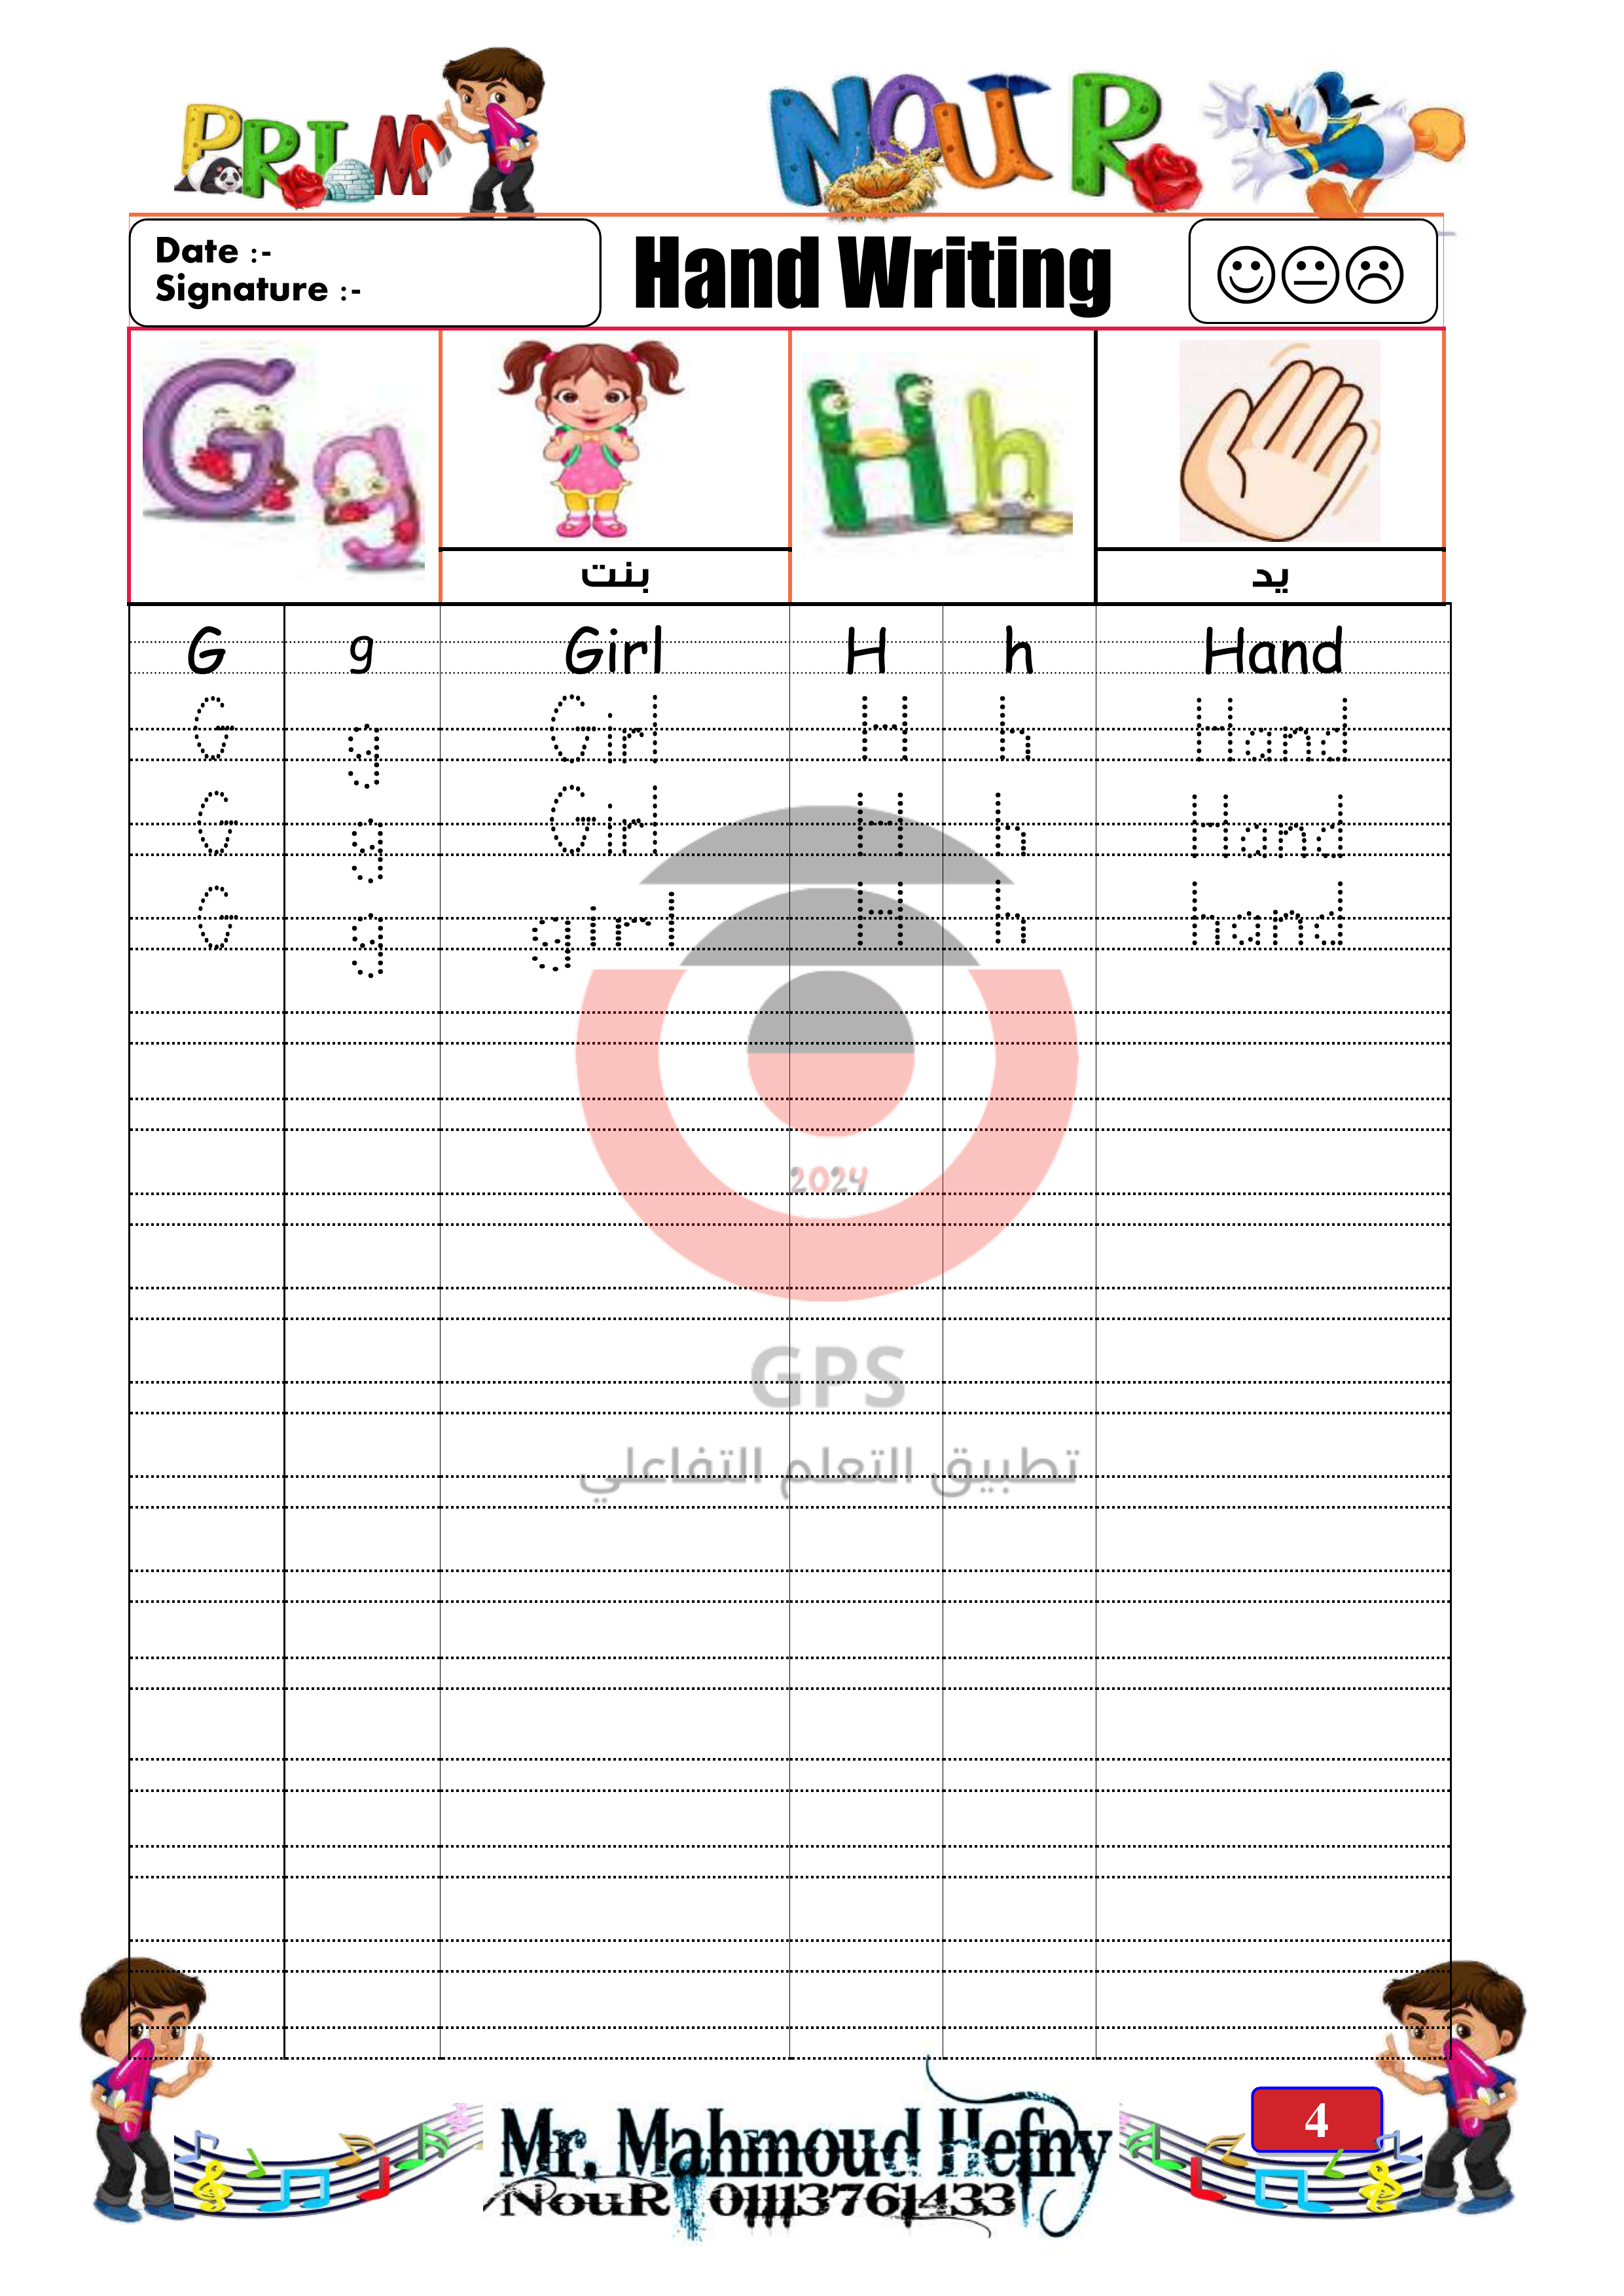 PRIM 1
NOUR
Date :-
Signature :-
Hand Writing
G g
H h
بنت
يد
G g Girl H h Hand
G g Girl H h Hand
G g Girl H h Hand
G g girl H h hand
2024
GPS
تطبيق التعلم التفاعلي
4
Mr. Mahmoud Hefny
NouR . 01113761433